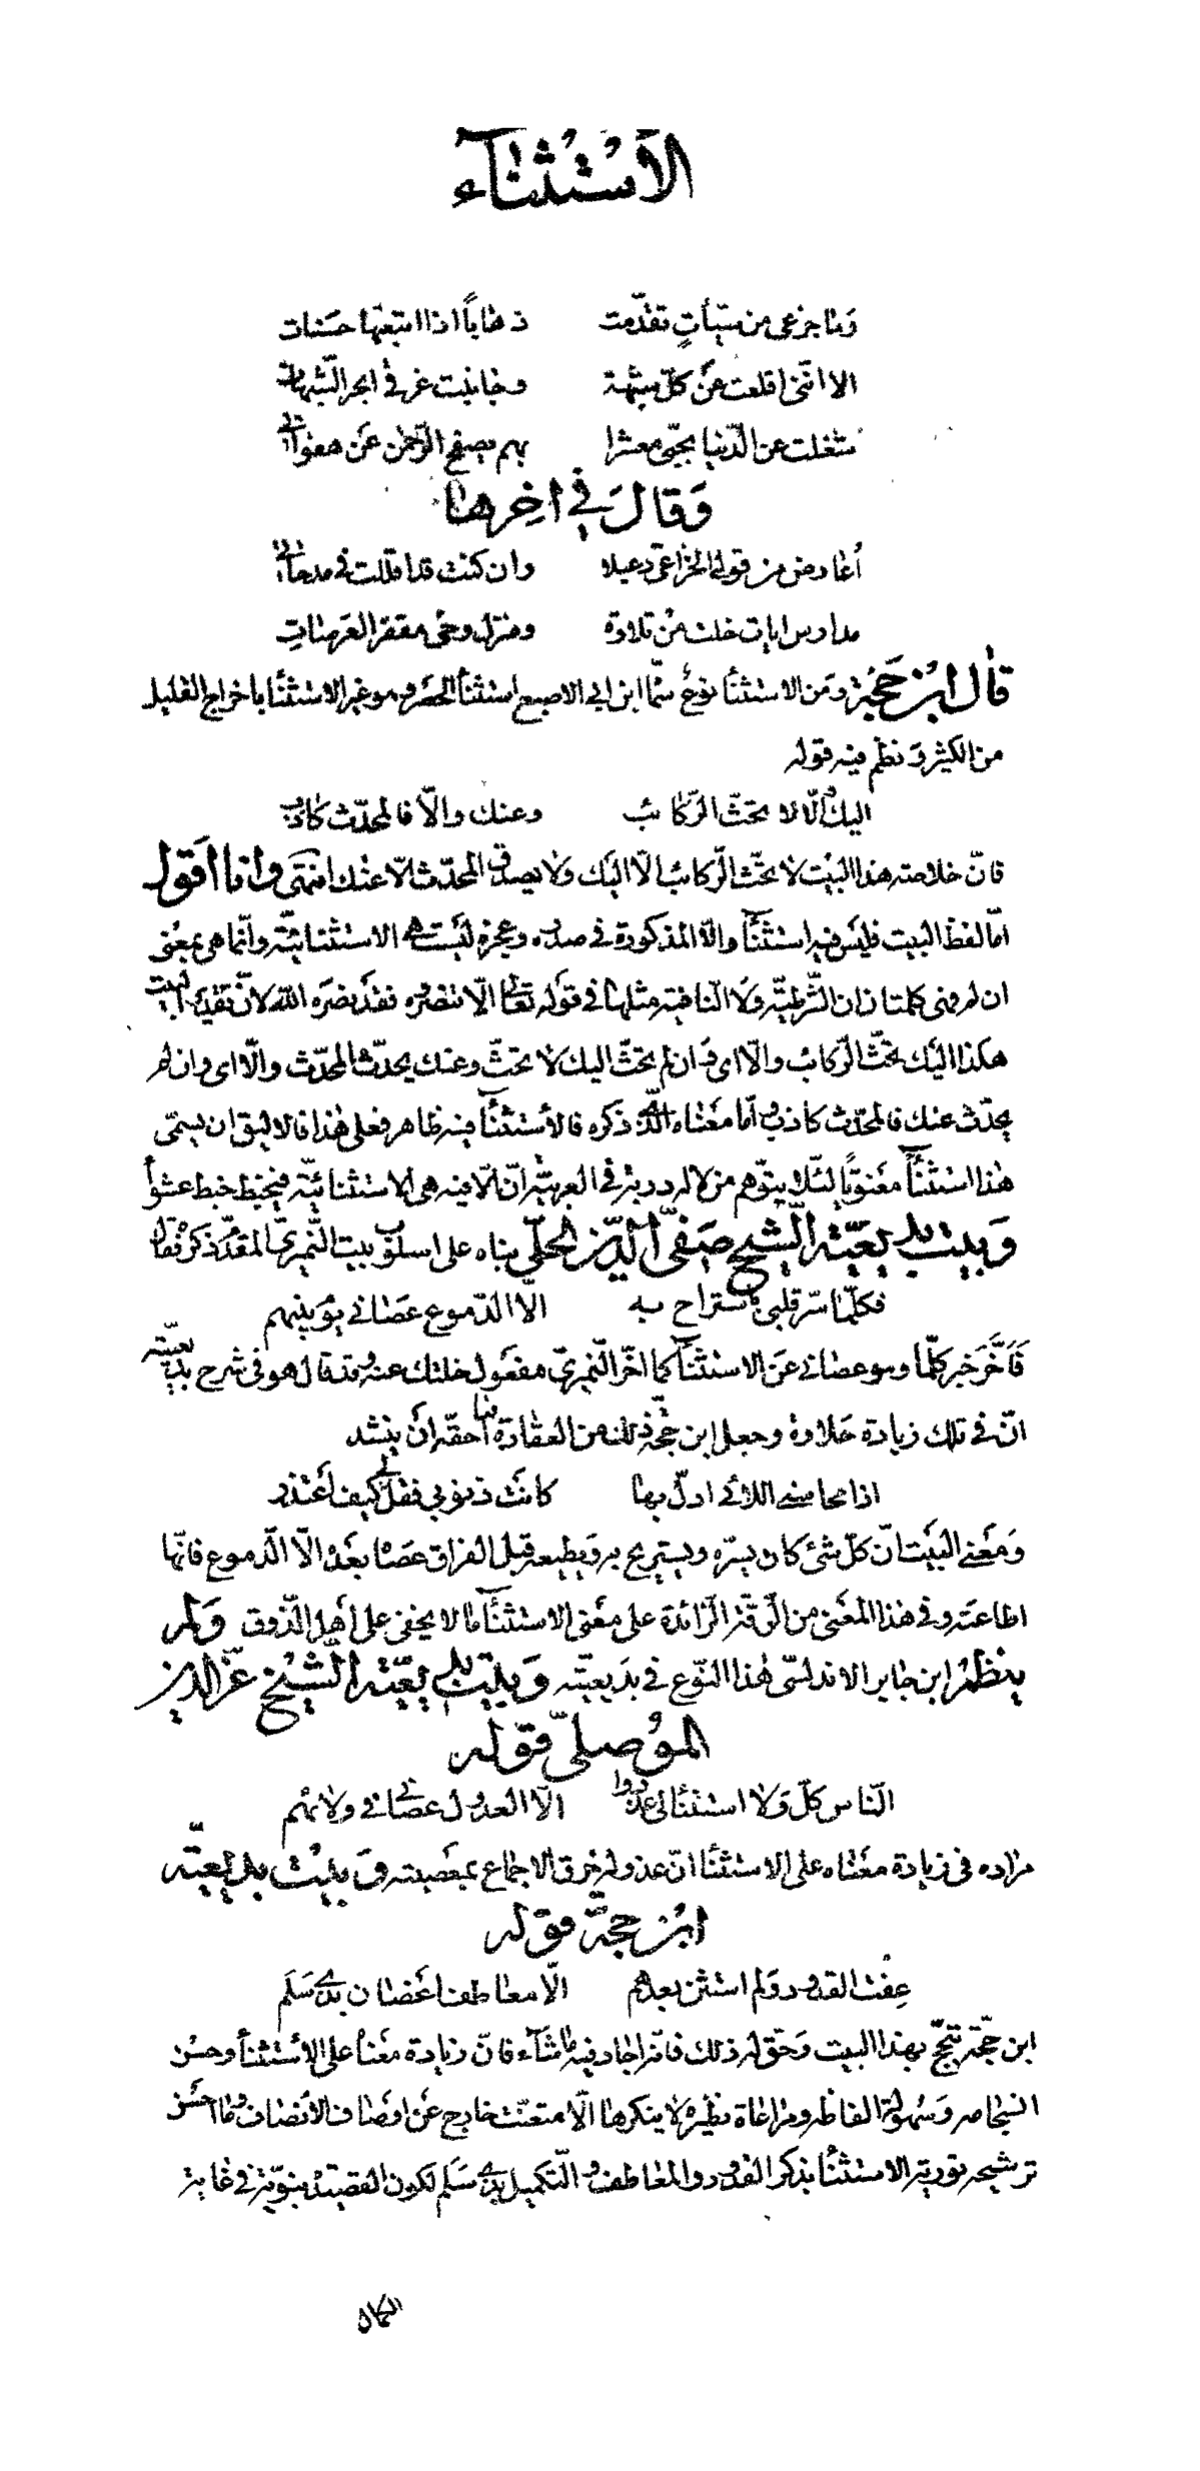 الاستثناء
وما جزعي من سيّأتٍ تقدّمت ذهابًا اذا اتبعتها حسنات
الا انّني اقلعت عن كلّ شبهة وجانبت غرقي ابحر الشّبهات
شغلت عن الدّنيا بحبّي معشرا بهم يصفح الرّحمن عن هفواتي
وقال في اخرها
أعارض من قول الخزاعيّ دعبلا وان كنت قد اقللت في مدحاتي
مدارس ايات خلت من تلاوة ومنزل وحي مقفر العرصات
قال ابن حجّة ومن الاستثنأ نوع سمّا ابن ابي الاصبع استثنأ الحصر وهو غير الاستثنأ باخراج القليل
من الكثير ونظم فيه قوله
اليك والّا لا تحثّ الركائب وعنك والّا فالمحدّث كاذب
فانّ خلاصة هذا البيت لا تحثّ الركائب الّا اليك ولا يصدق المحدّث الّا عنك انتهى وانا اقول
امّا لفظ البيت فليس فيه استثنأ والّا المذكورة في صدره وعجزه ليست هي الاستثنائيّة وانّما هي بمعنى
ان لم فهي كلمتان ان الشّرطيّة ولا النافية مثلها في قوله تعالى الّا تنصروه فقد نصره الله لانّ تقدير البيت
هكذا اليك تحثّ الركائب والّا اى وان لم تحثّ اليك لا تحثّ وعنك يحدّث المحدّث والّا اى وان لم
يحدّث عنك فالمحدّث كاذب وامّا معناه الّذي ذكره فالاستثنأ فيه ظاهر فعلى هذا فالاليق ان يسمّى
هذا استثنأ معنويًا لئلّا يتوّهم من لا له دربة في العربيّة انّ الّا فيه هي الاستثنائيّة فيخبط خبط عشوأ
وبيت بديعيّة الشّيخ صفيّ الدّين الحلّي بناه على اسلوب بيت النّميريّ المقدّم ذكره فقال
فكلّما سرّ قلبي واستراح به الا الدّموع عصاني بعد بينهم
فأخّر خبر كلّما وهو عصاني عن الاستثنأ كما اخّر النميريّ مفعول خلتك عنه وقد قال هو في شرح بديعيّته
انّ في تلك زيادة حلاوة وجعل ابن حجّة ذلك من العقادة احقّه ان ينشد
اذا محاسني اللائي ادلّ بها كانت ذنوبي فقل لي كيف أعتذر
ومعنى البيت انّ كلّ شئ كان يسرّه ويستريح به ويطيعه قبل الفراق عصاه بعده الّا الدّموع فانّها
اطاعته وفي هذا المعنى من الرّقّة الزائدة على معنى الاستثنأ ما لا يخفى على اهل الذّوق ولم
ينظم ابن جابر الاندلسّى هذا النّوع في بديعيّته وبيت بديعيّة الشّيخ عزّ الدين
الموصليّ قوله
النّاس كلّ ولا استثنأ لي عذروا الّا العذول عصاني في ولائهم
مراده في زيادة معناه على الاستثنأ انّ عذوله خرق الاجماع بمعصيته وبيت بديعيّة
ابن حجّة قوله
عفت القدود ولم استثن بعدهم الّا معاطف اغصان بذي سلم
ابن حجّة تبجّح بهذا البيت وحقّ له ذلك فانّه اجاد فيه ما شاء فانّ زيادة معناه على الاستثنأ وحسن
انسجامه وسهولة الفاظه ومراعاة نظيره لا ينكرها الّا متعنّت خارج عن اوصاف الانصاف وما احسن
ترشيحه تورية الاستثنأ بذكر القدود والمعاطف والتّكميل بذي سلم لكون القصيدة نبويّة في غاية
الكمال